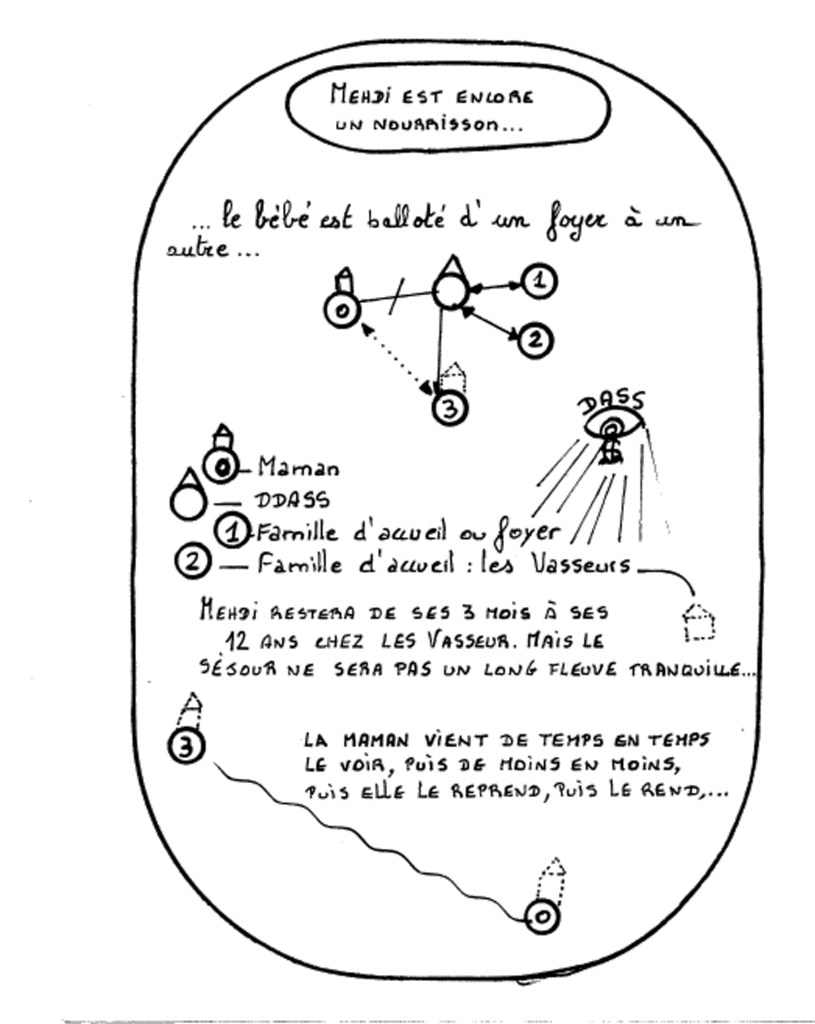 MEHDI EST ENCORE
UN NOURRISSON...
... le bébé est balloté d'un foyer à un
autre...
0
1
2
3
DASS
0
0 - Maman
- DDASS
1 - Famille d'accueil ou foyer
2 - Famille d'accueil : les Vasseurs
MEHDI RESTERA DE SES 3 MOIS À SES
12 ANS CHEZ LES VASSEUR. MAIS LE
SÉJOUR NE SERA PAS UN LONG FLEUVE TRANQUILLE...
3
LA MAMAN VIENT DE TEMPS EN TEMPS
LE VOIR, PUIS DE MOINS EN MOINS,
PUIS ELLE LE REPREND, PUIS LE REND,...
0